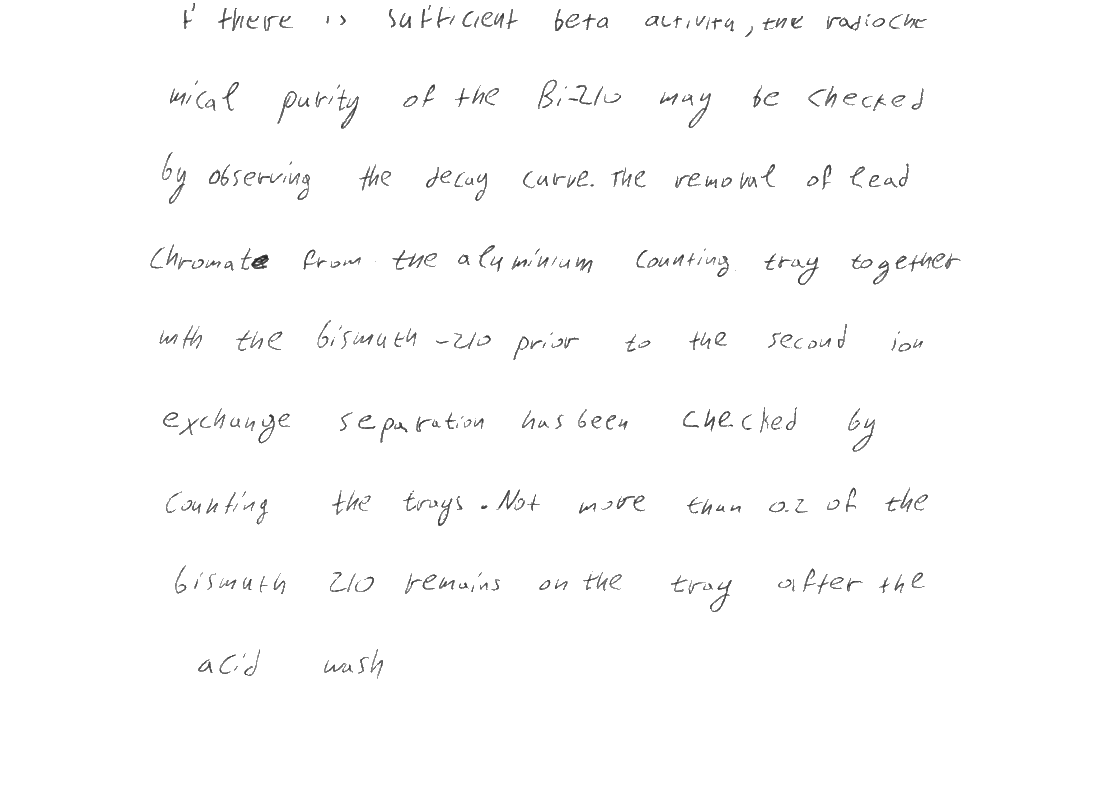 If there is sufficient beta activity, the radioche
mical purity of the Bi-210 may be checked
by observing the decay curve. The removal of lead
Chromate from the aluminium counting tray together
with the bismuth -210 prior to the second ion
exchange separation has been checked by
Counting the trays. Not more than 0.2 of the
bismuth 210 remains on the tray after the
acid wash